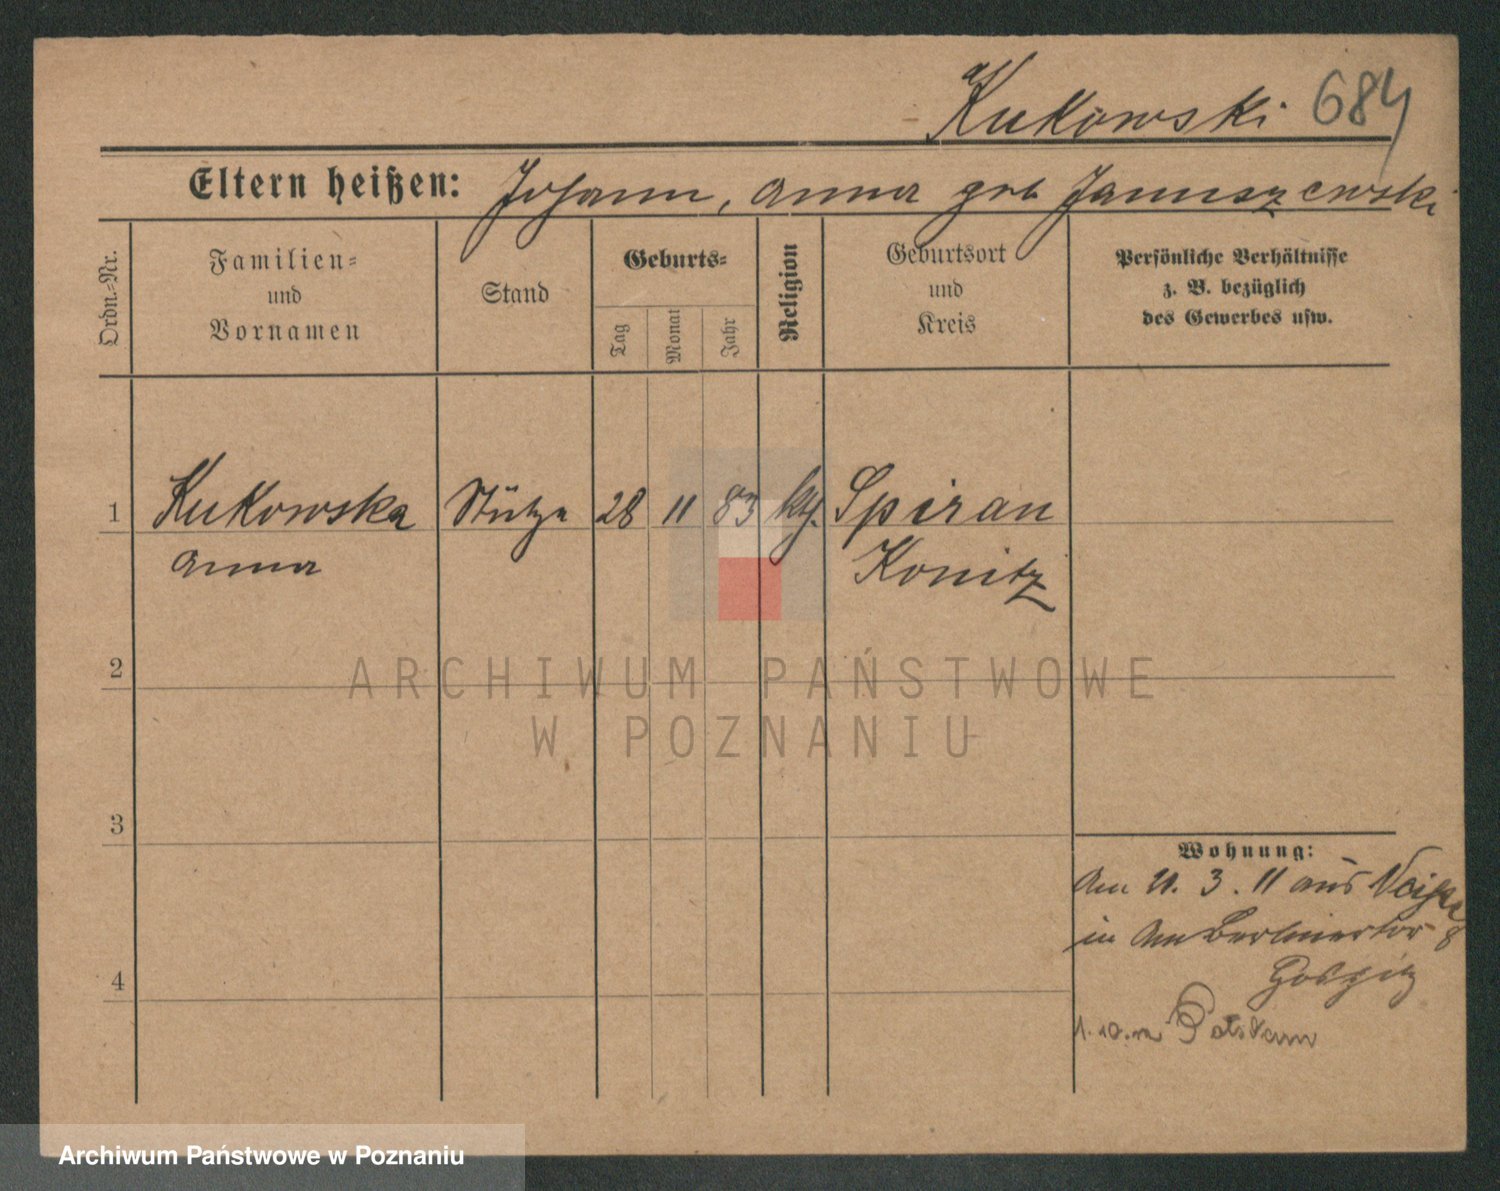 Kukowski 684
Eltern heißen: Johann, Anna geb Januszewski
Ordn.-Nr.
Familien-
und
Vornamen
Stand
Geburts-
Tag
Monat
Jahr
Religion
Geburtsort
und
Kreis
Persönliche Verhältnisse
z. B. bezüglich
des Gewerbes usw.
1 Kukowska Stütze 28 11 83 kth. Spiran
Anna Konitz
2
ARCHIWUM PAŃSTWOWE
W POZNANIU
3
Wohnung:
Am 3. 11 aus
in Am Berlinertor
4
Hospitz
1. 10. Potsdam
Archiwum Państwowe w Poznaniu